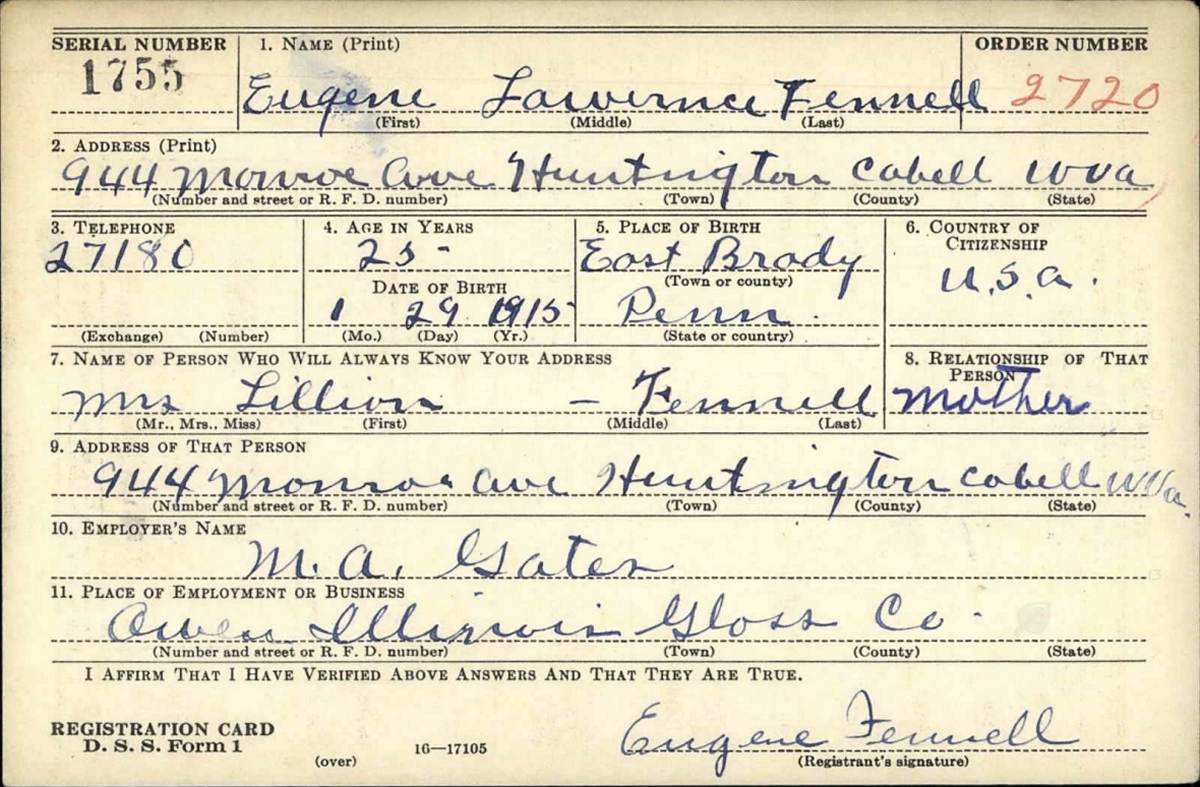 SERIAL NUMBER 1. NAME (Print) ORDER NUMBER
1755 Eugene Lawrence Fennell 2720
(First) (Middle) (Last)
2. ADDRESS (Print)
944 Monroe Ave Huntington Cabell W Va
(Number and street or R. F. D. number) (Town) (County) (State)
3. TELEPHONE 4. AGE IN YEARS 5. PLACE OF BIRTH 6. COUNTRY OF CITIZENSHIP
27180 25 East Brady U.S.A.
(Town or county)
DATE OF BIRTH
1 29 1915 Penn.
(Exchange) (Number) (Mo.) (Day) (Yr.) (State or country)
7. NAME OF PERSON WHO WILL ALWAYS KNOW YOUR ADDRESS 8. RELATIONSHIP OF THAT PERSON
Mrs Lillian - Fennell Mother
(Mr., Mrs., Miss) (First) (Middle) (Last)
9. ADDRESS OF THAT PERSON
944 Monroe Ave Huntington Cabell W Va.
(Number and street or R. F. D. number) (Town) (County) (State)
10. EMPLOYER'S NAME
M. A. Gates
11. PLACE OF EMPLOYMENT OR BUSINESS
Owen Illinois Glass Co.
(Number and street or R. F. D. number) (Town) (County) (State)
I AFFIRM THAT I HAVE VERIFIED ABOVE ANSWERS AND THAT THEY ARE TRUE.
REGISTRATION CARD
D. S. S. Form 1 16—17105 Eugene Fennell
(over) (Registrant's signature)